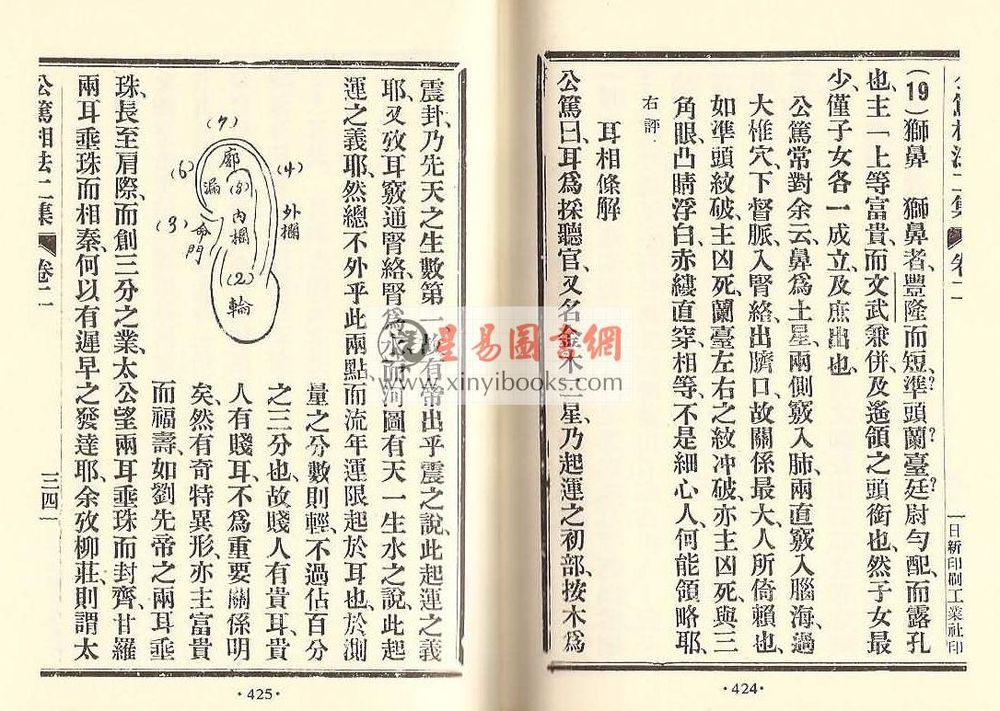 公篤相法二集 卷二
(19)獅鼻　獅鼻者、豐隆而短、準頭蘭臺廷尉勻配、而露孔
也、主「上等富貴、而文武兼併、及遙領之頭銜也、然子女最
少、僅子女各一成立、及庶出也、
公篤常對余云、鼻爲土星、兩側竅入肺、兩直竅入腦海、過
大椎穴、下督脈、入腎絡、出臍口、故關係最大、人所倚賴也、
如準頭紋破、主凶死、蘭臺左右之紋冲破、亦主凶死、與三
角眼凸睛浮白赤縷直穿相等、不是細心人、何能領略耶、
右評
耳相條解
公篤曰、耳爲採聽官、又名金木二星、乃起運之初部、按木爲
日新印刷工業社印
·424·
震卦、乃先天之生數第一、故有帝出乎震之說、此起運之義
耶、又攷耳竅通腎絡、腎爲水、而河圖有天一生水之說、此起
運之義耶、然總不外乎此兩點、而流年運限起於耳也、於測
量之分數則輕、不過佔百分
之三分也、故賤人有貴耳、貴
人有賤耳、不爲重要關係明
矣、然有奇特異形、亦主富貴
而福壽、如劉先帝之兩耳垂
珠、長至肩際、而創三分之業、太公望兩耳垂珠而封齊、甘羅
兩耳垂珠而相秦、何以有遲早之發達耶、余攷柳莊、則謂太
(7)
廓
(6)
漏
(8)
(4)
外欄
內欄
(3)
命門
(2)
輪
公篤相法二集 卷二
三四一
·425·
星易圖書網
www.xinyibooks.com